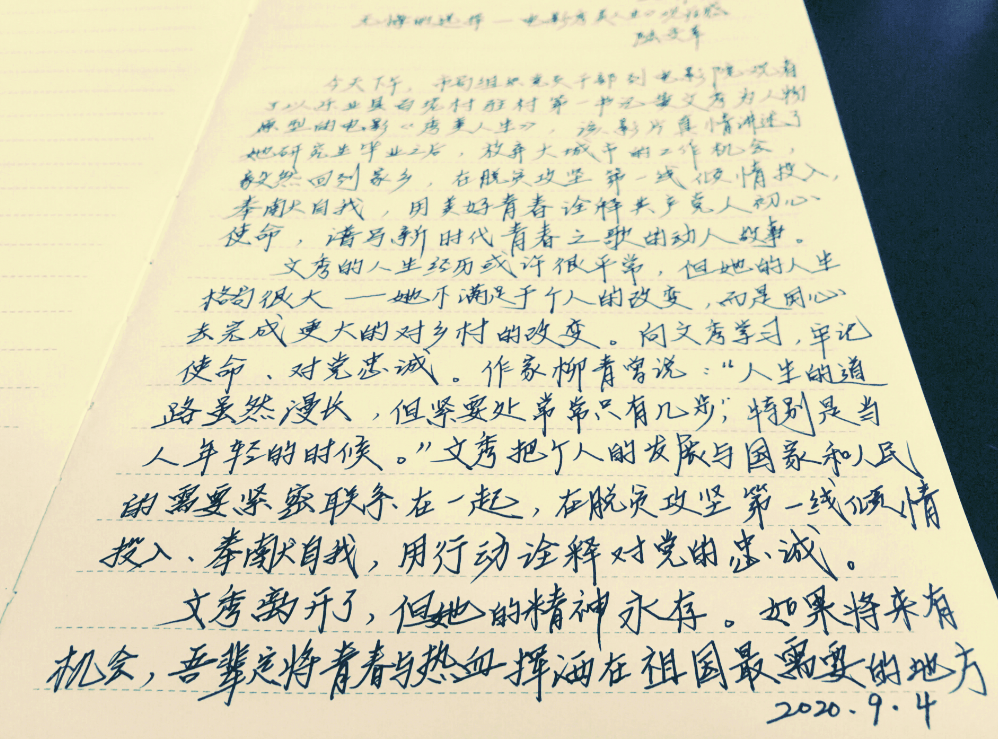 无悔的选择——电影秀美人生》观后感
陆
今天下午，市局组织党员干部到电影院观看
了以乐业县百坭村驻村第一书记黄文秀为人物
原型的电影《秀美人生》，该影片真情讲述了
她研究生毕业之后，放弃大城市的工作机会，
毅然回到家乡，在脱贫攻坚第一线倾情投入，
奉献自我，用美好青春诠释共产党人初心
使命，谱写新时代青春之歌的动人故事。
文秀的人生经历或许很平常，但她的人生
格局很大——她不满足于个人的改变，而是用心
去完成更大的对乡村的改变。向文秀学习，牢记
使命、对党忠诚。作家柳青曾说：“人生的道
路虽然漫长，但紧要处常常只有几步，特别是当
人年轻的时候。”文秀把个人的发展与国家和人民
的需要紧密联系在一起，在脱贫攻坚第一线倾情
投入、奉献自我，用行动诠释对党的忠诚。
文秀离开了，但她的精神永存。如果将来有
机会，吾辈定将青春与热血挥洒在祖国最需要的地方
2020.9.4